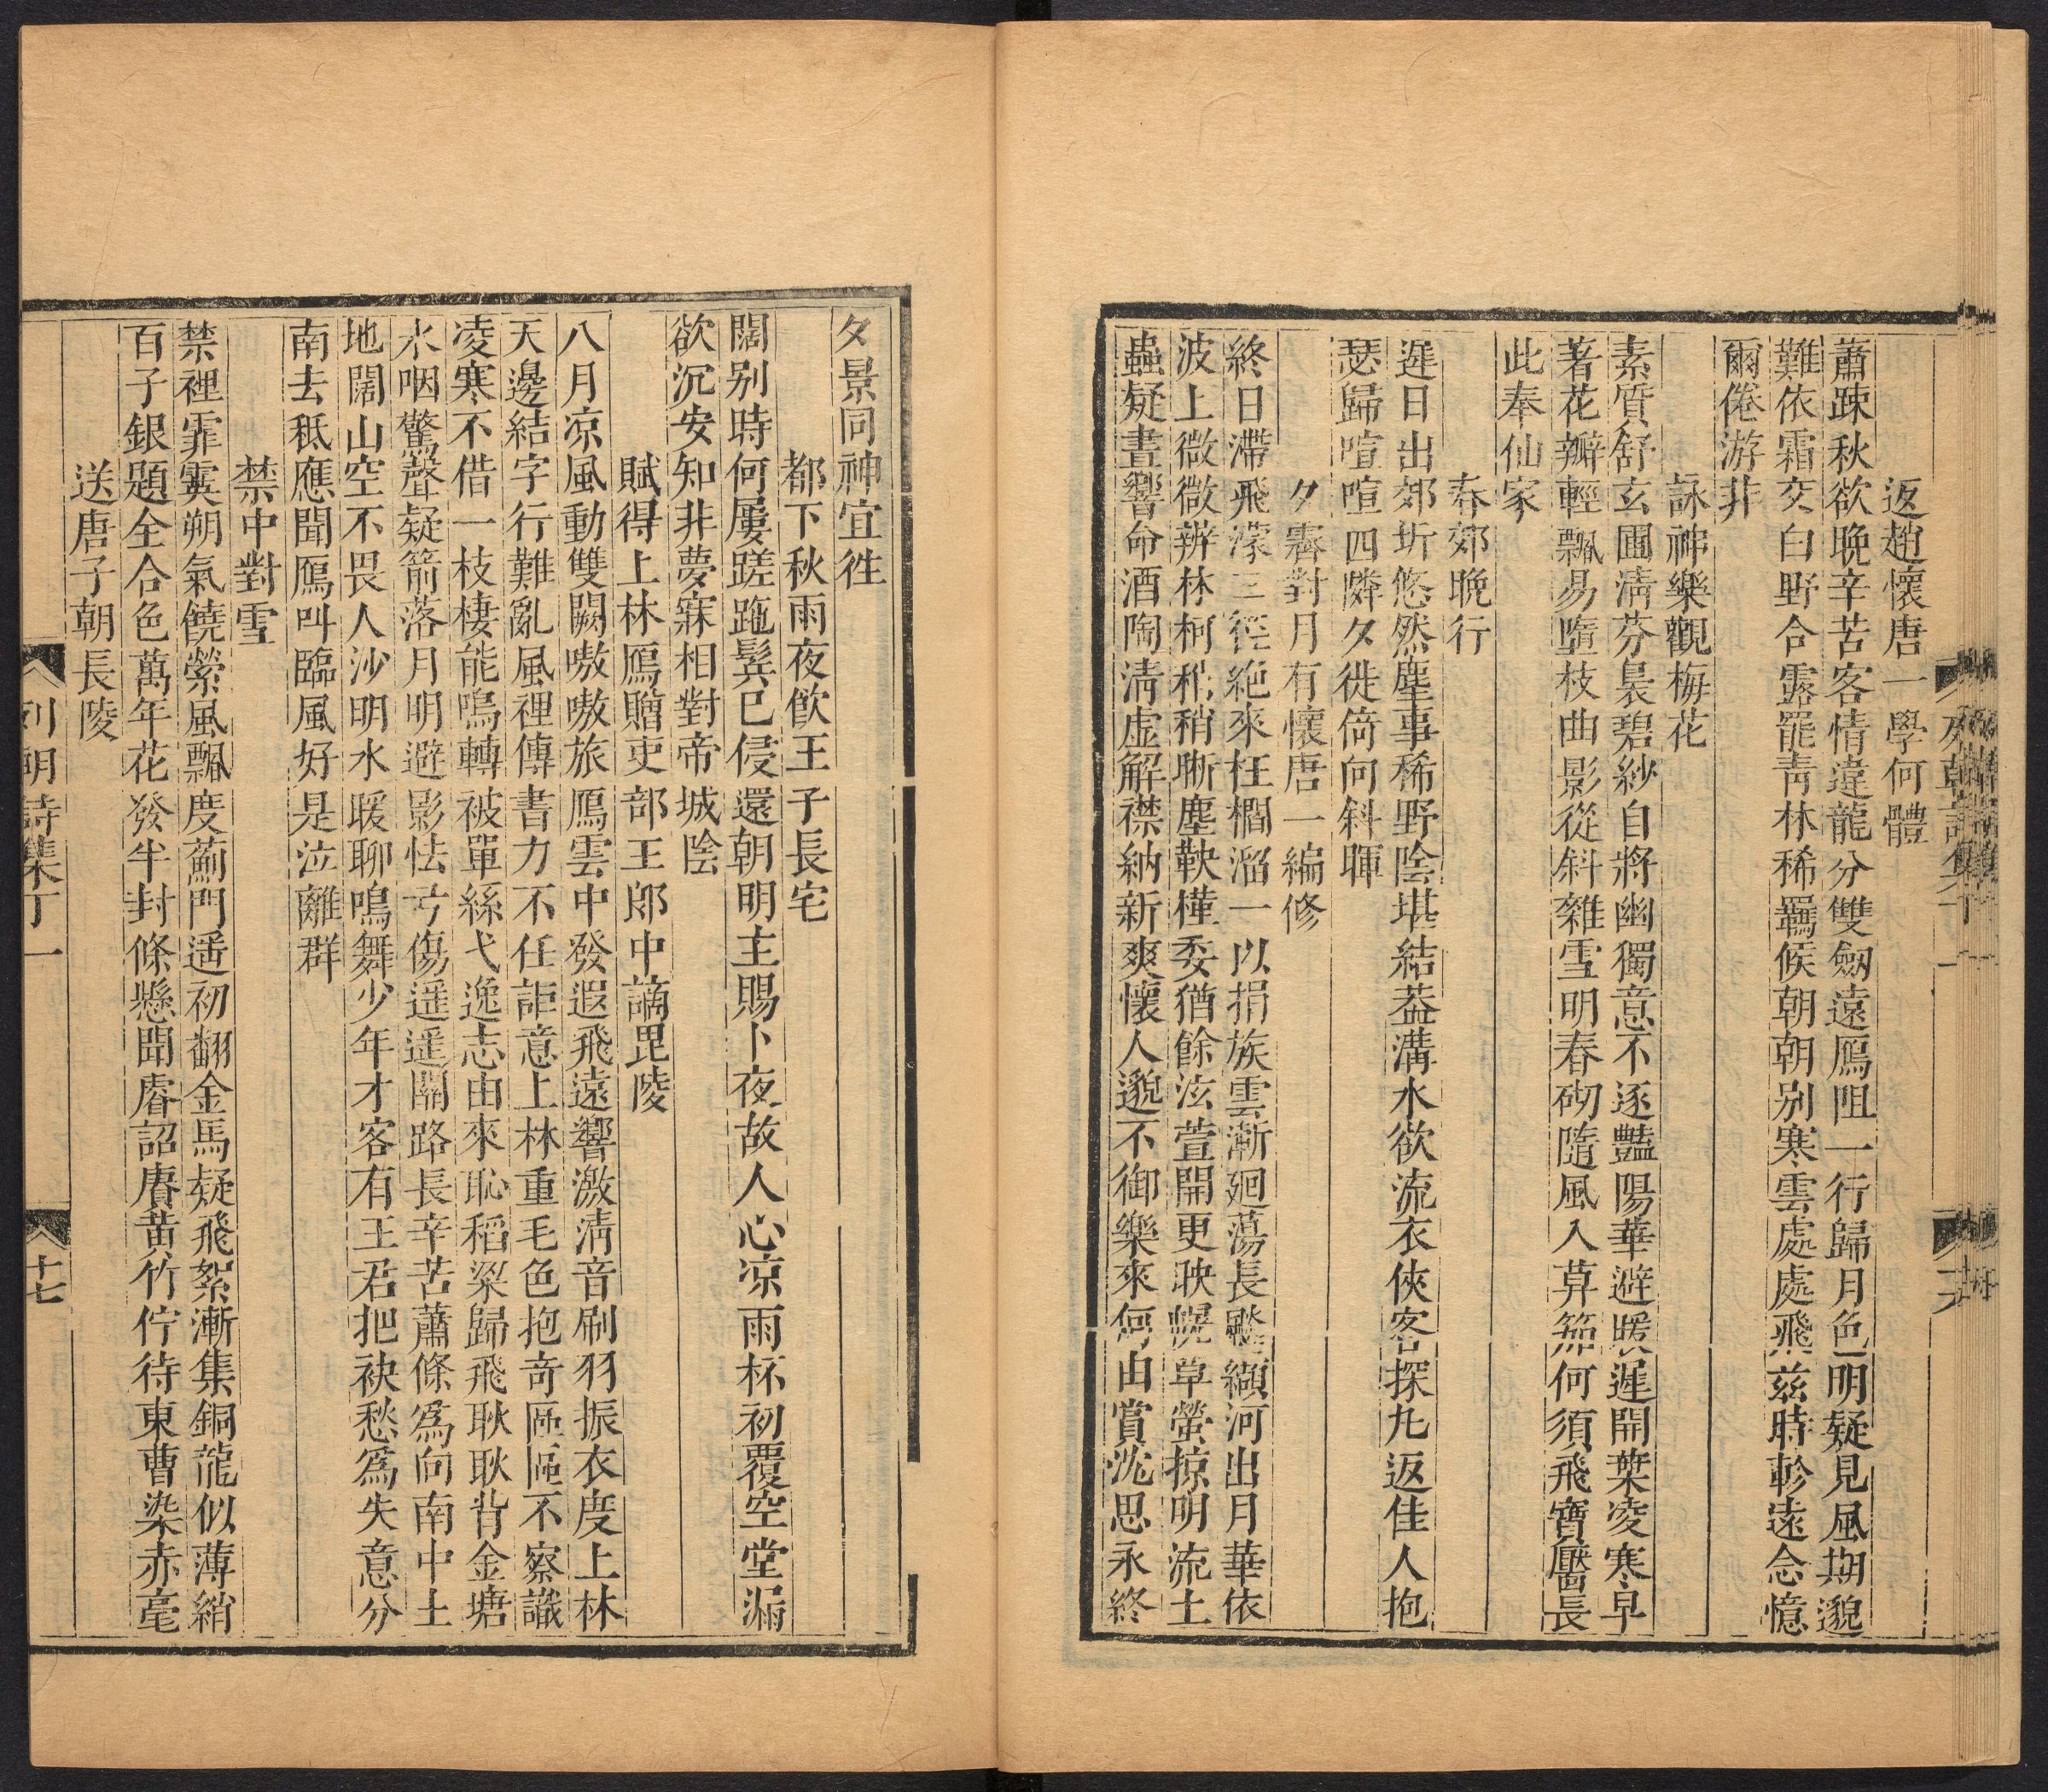 返趙懷唐一學何體
蕭疎秋欲晚辛苦客情違龍分雙劒遠鴈阻一行歸月色明疑見風期邈
難依霜交白野合露罷靑林稀羈候朝朝别寒雲處處飛兹時軫遠念憶
爾倦游非
詠神樂觀梅花
素質舒玄圃淸芬裊碧紗自將幽獨意不逐豔陽華避暖遲開葉凌寒早
著花瓣輕飄易墮枝曲影從斜雜雪明春砌隨風入莽笳何須飛寶靨長
此奉仙家
春郊晚行
遲日出郊圻悠然塵事稀野陰堪結葢溝水欲流衣俠客探九返佳人抱
瑟歸喧喧四隣夕徙倚向斜暉
夕霽對月有懷唐一編修
終日滯飛濛三徑絶來枉櫩溜一以捐族雲漸廻蕩長飈纈河出月華依
波上微微辨林柯稍稍晰塵鞅樺委猶餘泫萱開更映幌草螢掠明流土
蟲疑晝響命酒陶淸虛解襟納新爽懷人邈不御樂來何由賞沈思永終
夕景同神宜徃
都下秋雨夜飮王子長宅
闊别時何屢蹉跎鬂已侵還朝明主賜卜夜故人心凉雨杯初覆空堂漏
欲沉安知非夢寐相對帝城陰
賦得上林鴈贈吏部王郎中謫毘陵
八月凉風動雙闕嗷嗷旅鴈雲中發遐飛遠響激淸音刷羽振衣度上林
天邊結字行難亂風裡傳書力不任詎意上林重毛色抱竒區區不察識
凌寒不借一枝棲能鳴轉被單絲弋逸志由來恥稻粱歸飛耿耿背金塘
水咽驚聲疑箭落月明避影怯弓傷遥遥關路長辛苦蕭條爲向南中土
地闊山空不畏人沙明水暖聊鳴舞少年才客有王君把袂愁爲失意分
南去秪應聞鴈叫臨風好是泣離群
禁中對雪
禁裡霏霙朔氣饒縈風飄度薊門遥初翻金馬疑飛絮漸集銅龍似薄綃
百子銀題全合色萬年花發半封條懸聞睿詔賡黃竹佇待東曹染赤毫
送唐子朝長陵
列朝詩集丁一
十七